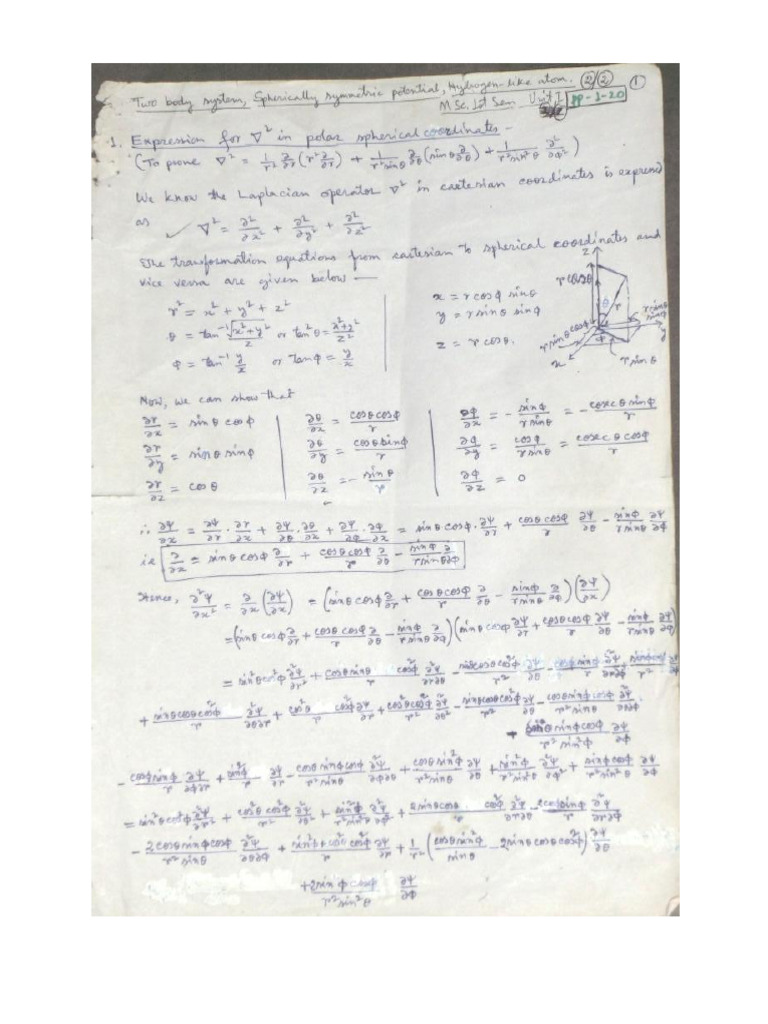 Two body system, Spherically symmetric potential, Hydrogen-like atom. (2)/(2) (1)
M.Sc. 1st Sem Unit I PP-1-20
1. Expression for ∇² in polar spherical coordinates -
(To prove ∇² = 1/r² ∂/∂r (r² ∂/∂r) + 1/(r² sinθ) ∂/∂θ (sinθ ∂/∂θ) + 1/(r² sin²θ) ∂²/∂φ²)
We know the Laplacian operator ∇² in cartesian coordinates is expressed
as ✓ ∇² = ∂²/∂x² + ∂²/∂y² + ∂²/∂z²
The transformation equations from cartesian to spherical coordinates and
vice versa are given below —
r² = x² + y² + z²
θ = tan⁻¹ √(x²+y²)/z or tan²θ = (x²+y²)/z²
φ = tan⁻¹ y/x or tanφ = y/x
x = r cosφ sinθ
y = r sinθ sinφ
z = r cosθ.
z
r cosθ
θ
r
r sinθ sinφ
r sinθ cosφ
φ
y
x
r sinθ
Now, we can show that
∂r/∂x = sinθ cosφ | ∂θ/∂x = cosθ cosφ/r | ∂φ/∂x = - sinφ/(r sinθ) = - cosecθ sinφ/r
∂r/∂y = sinθ sinφ | ∂θ/∂y = cosθ sinφ/r | ∂φ/∂y = cosφ/(r sinθ) = cosecθ cosφ/r
∂r/∂z = cosθ | ∂θ/∂z = - sinθ/r | ∂φ/∂z = 0
∴ ∂ψ/∂x = ∂ψ/∂r · ∂r/∂x + ∂ψ/∂θ · ∂θ/∂x + ∂ψ/∂φ · ∂φ/∂x = sinθ cosφ · ∂ψ/∂r + cosθ cosφ/r ∂ψ/∂θ - sinφ/(r sinθ) ∂ψ/∂φ
ie ∂/∂x = sinθ cosφ ∂/∂r + cosθ cosφ/r ∂/∂θ - sinφ/(r sinθ) ∂/∂φ
Hence, ∂²ψ/∂x² = ∂/∂x (∂ψ/∂x) = (sinθ cosφ ∂/∂r + cosθ cosφ/r ∂/∂θ - sinφ/(r sinθ) ∂/∂φ)(∂ψ/∂x)
= (sinθ cosφ ∂/∂r + cosθ cosφ/r ∂/∂θ - sinφ/(r sinθ) ∂/∂φ)(sinθ cosφ ∂ψ/∂r + cosθ cosφ/r ∂ψ/∂θ - sinφ/(r sinθ) ∂ψ/∂φ)
= sin²θ cos²φ ∂²ψ/∂r² + cosθ sinθ/r cos²φ ∂²ψ/∂r∂θ - sinθ cosθ cos²φ/r² ∂ψ/∂θ - cosφ sinφ/r ∂²ψ/∂r∂φ + sinφ cosφ/r² ∂ψ/∂φ
+ sinθ cosθ cos²φ/r ∂²ψ/∂θ∂r + cos²θ/r cos²φ ∂ψ/∂r + cos²θ cos²φ/r² ∂²ψ/∂θ² - sinθ cosθ cos²φ/r² ∂ψ/∂θ - cosθ sinφ cosφ/(r² sinθ) ∂²ψ/∂θ∂φ
- cosφ sinφ/r ∂²ψ/∂φ∂r + sin²φ/r ∂ψ/∂r - cosθ sinφ cosφ/(r² sinθ) ∂²ψ/∂φ∂θ + cosθ sin²φ/(r² sinθ) ∂ψ/∂θ + sin²φ/(r² sin²θ) ∂²ψ/∂φ² + sinφ cosφ/(r² sin²θ) ∂ψ/∂φ
= sin²θ cos²φ ∂²ψ/∂r² + cos²θ cos²φ/r² ∂²ψ/∂θ² + sin²φ/(r² sin²θ) ∂²ψ/∂φ² + 2 sinθ cosθ/r cos²φ ∂²ψ/∂r∂θ - 2 cosφ sinφ/r ∂²ψ/∂r∂φ
- 2 cosθ sinφ cosφ/(r² sinθ) ∂²ψ/∂θ∂φ + ∂ψ/∂r + 1/r² (cosθ sin²φ/sinθ - 2 sinθ cosθ cos²φ) ∂ψ/∂θ
+ 2 sinφ cosφ/(r² sin²θ) ∂ψ/∂φ